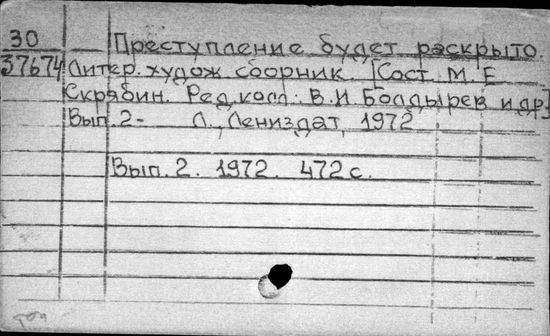 30 Преступление будет раскрыто.
37674 Литер. худож сборник. [Сост. М. Е
Скрябин. Ред. колл.: В. И. Болдырев и др]
Вып. 2- Л., Лениздат, 1972
Вып. 2. 1972. 472 с.